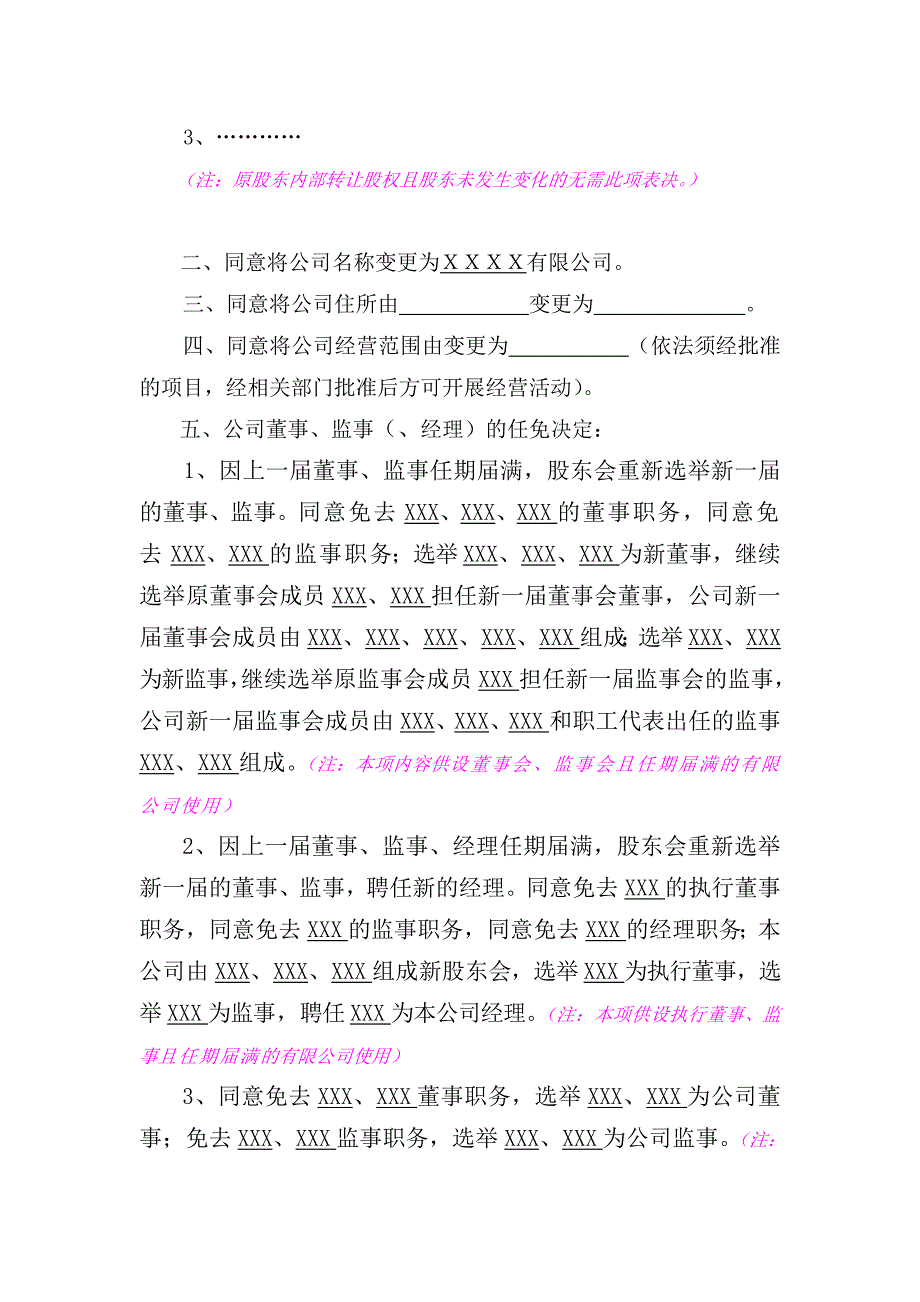 3、…………
（注：原股东内部转让股权且股东未发生变化的无需此项表决。）
二、同意将公司名称变更为ＸＸＸＸ有限公司。
三、同意将公司住所由____________变更为______________。
四、同意将公司经营范围由变更为___________（依法须经批准
的项目，经相关部门批准后方可开展经营活动）。
五、公司董事、监事（、经理）的任免决定：
1、因上一届董事、监事任期届满，股东会重新选举新一届
的董事、监事。同意免去 XXX、XXX、XXX 的董事职务，同意免
去 XXX、XXX 的监事职务；选举 XXX、XXX、XXX 为新董事，继续
选举原董事会成员 XXX、XXX 担任新一届董事会董事，公司新一
届董事会成员由 XXX、XXX、XXX、XXX、XXX 组成；选举 XXX、XXX
为新监事，继续选举原监事会成员 XXX 担任新一届监事会的监事，
公司新一届监事会成员由 XXX、XXX、XXX 和职工代表出任的监事
XXX、XXX 组成。（注：本项内容供设董事会、监事会且任期届满的有限
公司使用）
2、因上一届董事、监事、经理任期届满，股东会重新选举
新一届的董事、监事，聘任新的经理。同意免去 XXX 的执行董事
职务，同意免去 XXX 的监事职务，同意免去 XXX 的经理职务；本
公司由 XXX、XXX、XXX 组成新股东会，选举 XXX 为执行董事，选
举 XXX 为监事，聘任 XXX 为本公司经理。（注：本项供设执行董事、监
事且任期届满的有限公司使用）
3、同意免去 XXX、XXX 董事职务，选举 XXX、XXX 为公司董
事；免去 XXX、XXX 监事职务，选举 XXX、XXX 为公司监事。（注：